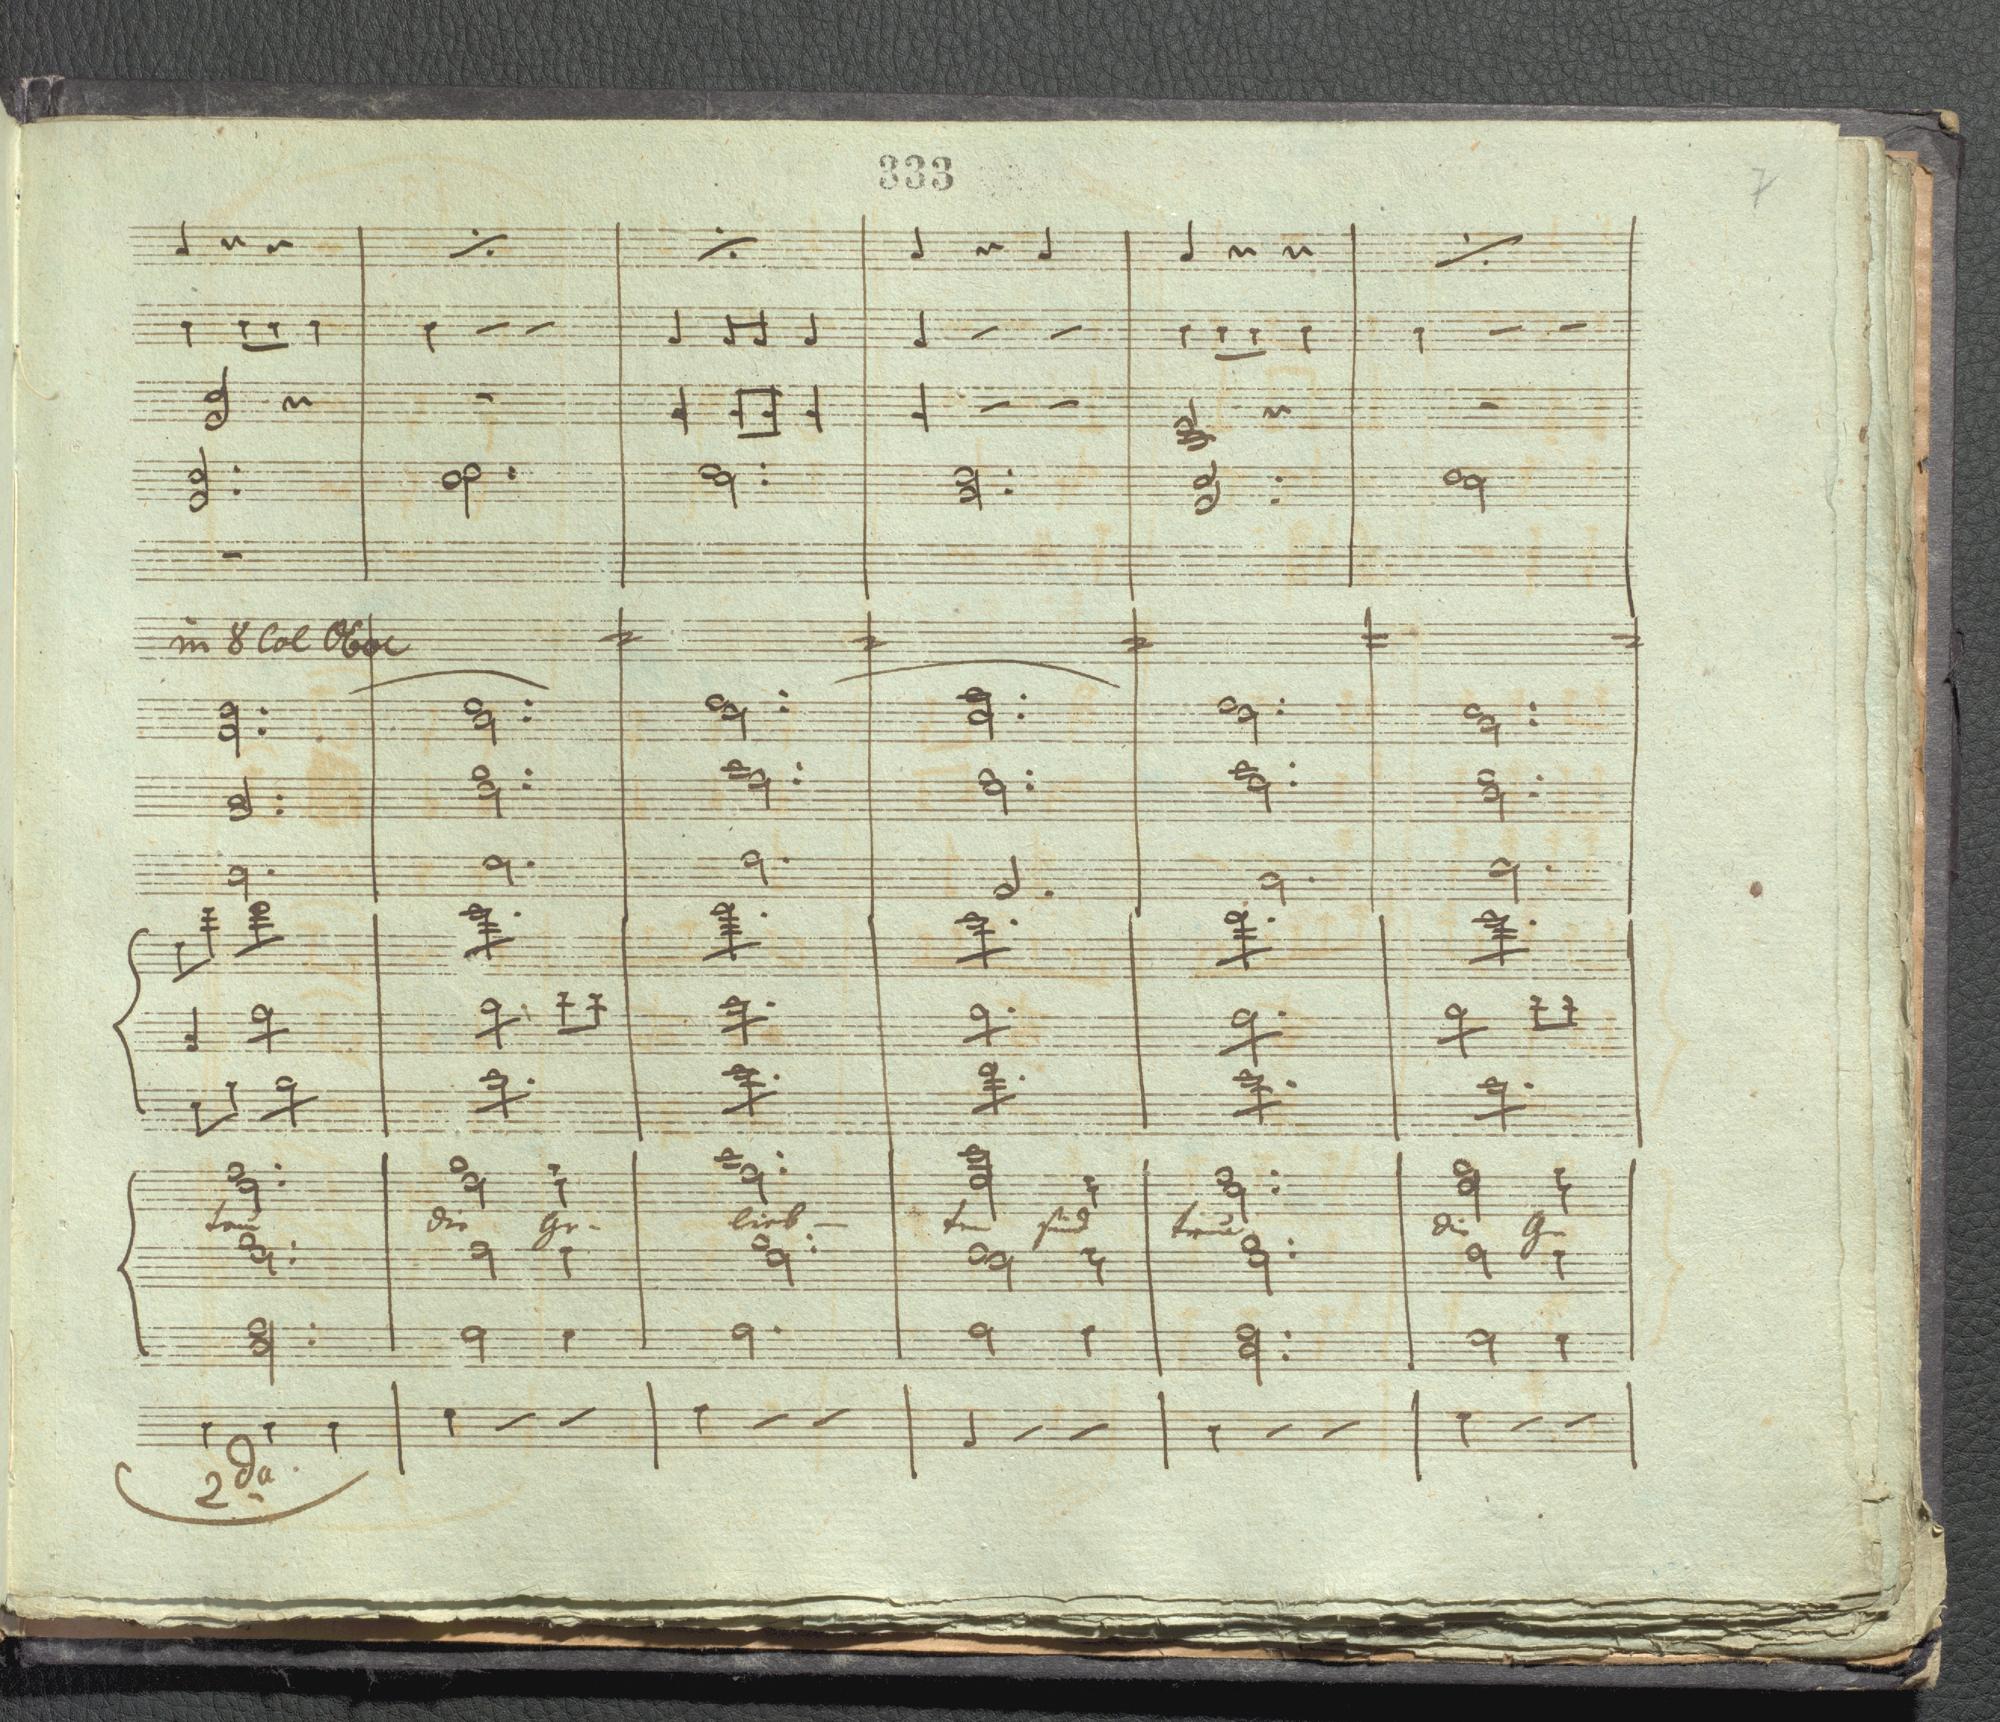 333
7
in 8 Col Oboe
treu die Ge- lieb- ten sind treu die Ge-
2da.